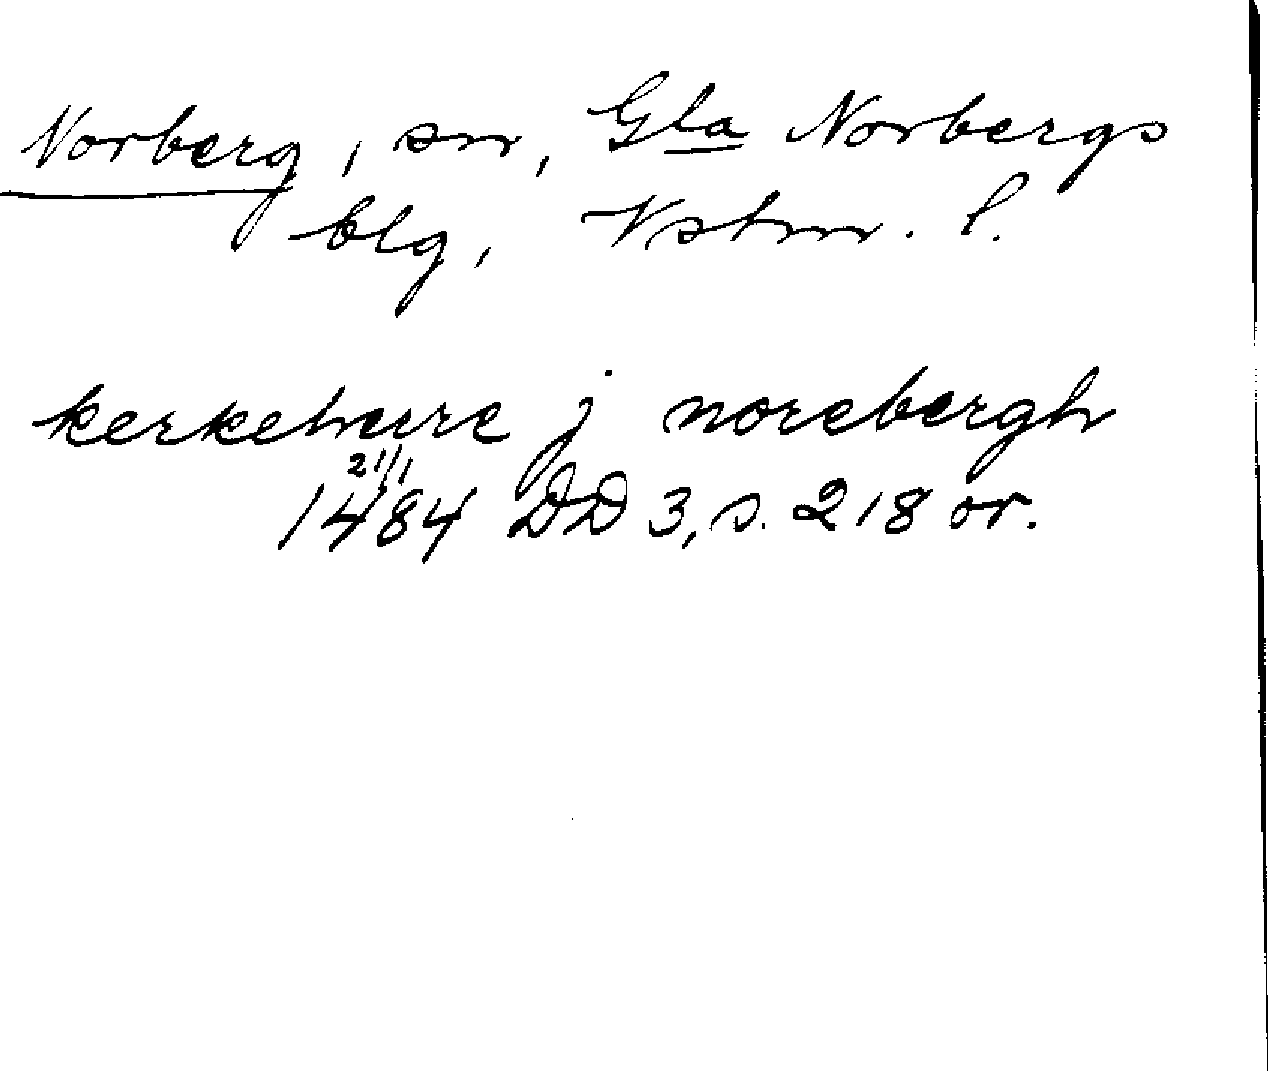 Norberg, sn, Gla Norbergs
blg, Vstm. l.
kerkeherre j norebergh
21/1
1484 DD 3, s. 218 or.